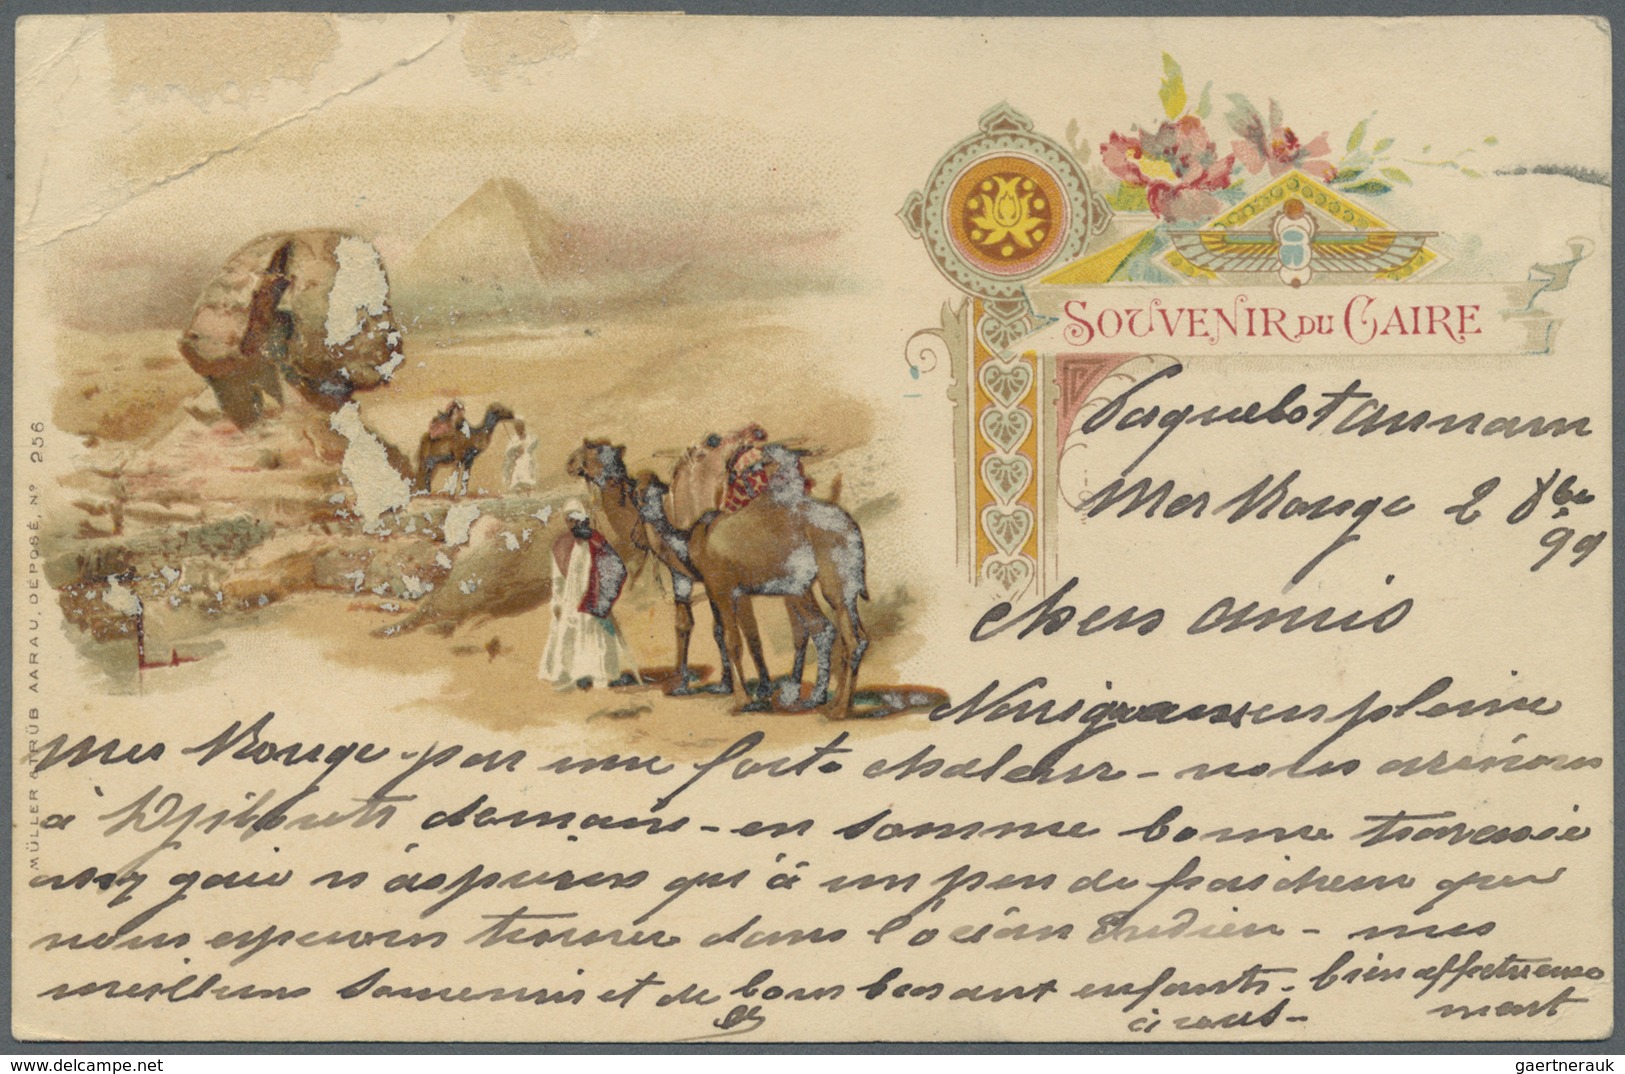 SOUVENIR DU CAIRE
Paquebot Annam
Mer Rouge 2 8bre
99
chers amis
Nous en pleine
Mer Rouge par une forte chaleur - nous arrivons
à Djibouti demain - en somme bonne traversée
assez gaie n'aspirons qu'à un peu de fraicheur que
nous esperons trouver dans l'océan Indien - mes
meilleurs souvenirs et de bons baisers aux enfants - bien affectueuse
à vous - ment
MÜLLER & TRÜB AARAU, DÉPOSÉ, Nº 256
gaertnerauk